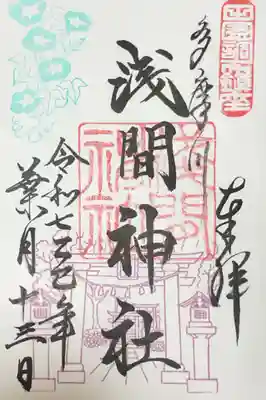 奉拝
多摩川
浅間神社
浅間
神社
令和七乙巳年
葉月十三日